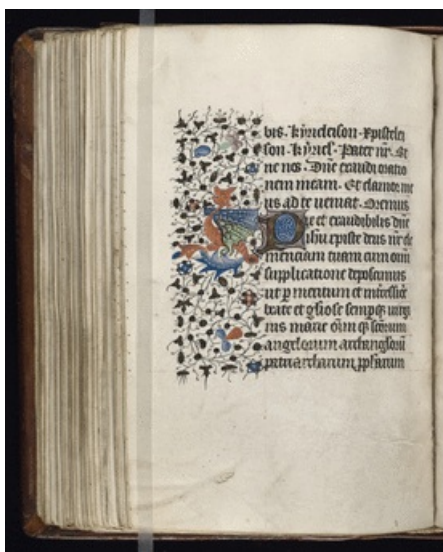 bis. kyrieleison. xpistelei
son. kyriel. Pater nr. Et
ne nos. Dne exaudi oratio
nem meam. Et clamor me
us ad te veniat. Oremus
et exaudibilis dne
ihu xpiste deus nr cle
menciam tuam cum omi
supplicatione deposcimus
ut p meritum et intercessioe
beate et gliose sempq virgi
nis marie om q scorum
angelorum archanglorum
patriarcharum pphetarum